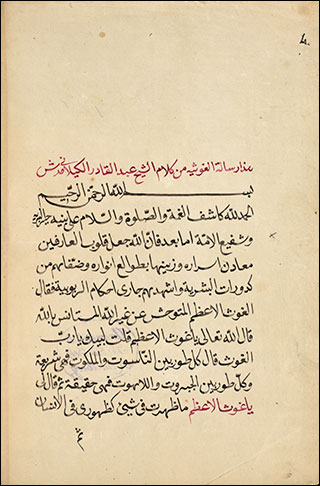 هذا رسالة الغوثيه من كلام الشيخ عبد القادر الكيلانى قدس
بسم الله الرحمن الرحيم
الحمد لله كاشف الغمة والصلوة والسلام على نبيه خير البريه
وشفيع الامّة اما بعد فانّ الله جعل قلوب العارفين
معادن اسراره وزينها بطوالع انواره وصفّاهم من
كدورات البشرية واشهدهم جارى احكام الربوبية فقال
الغوث الاعظم المتوحش عن غير الله المستأنس بالله
قال الله تعالى يا غوث الاعظم قلت لبيك يا ربّ
الغوث قال كل طور بين الناسوت والملكوت فهى شريعة
وكلّ طور بين الجبروت واللاهوت فهى حقيقة ثم قال لى
يا غوث الاعظم ما ظهرت فى شئ كظهورى فى الانسان
ثم